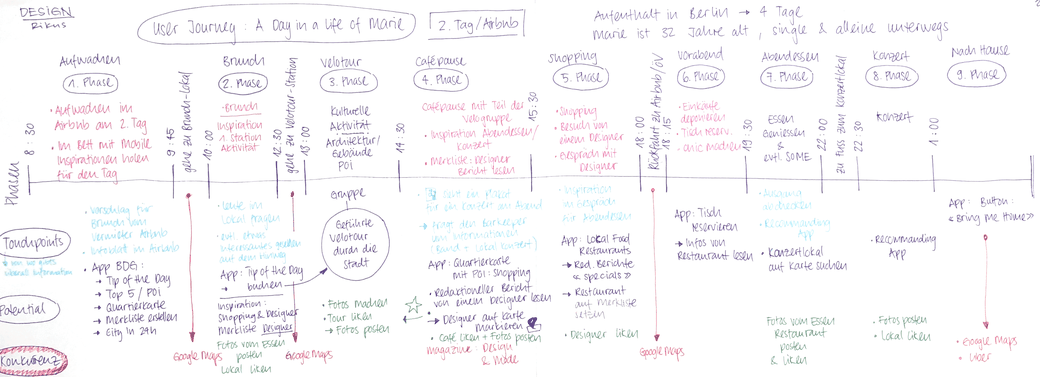 DESIGN
Rikus
User Journey : A Day in a life of Marie
2. Tag / Airbnb
Aufenthalt in Berlin → 4 Tage
Marie ist 32 Jahre alt , single & alleine unterwegs
Aufwachen
1. Phase
Brunch
2. Phase
Velotour
3. Phase
Cafépause
4. Phase
Shopping
5. Phase
Vorabend
6. Phase
Abendessen
7. Phase
Konzert
8. Phase
Nach Hause
9. Phase
Phasen
8:30
• Aufwachen im
Airbnb am 2. Tag
• Im Bett mit
Inspirationen holen
für den Tag
9:45
gehe zu Brunch-Lokal
10:00
• Brunch
Inspiration
1 Station
Aktivität
12:30
gehe zu Velotour-Station
13:00
Kulturelle
Aktivität
Architektur/
Gebäude
POI
14:30
Cafépause mit Teil der
Velogruppe
• Inspiration Abendessen/
Konzert
• Merkliste: Designer
Bericht lesen
15:30
• Shopping
• Besuch von
einem Designer
• Gespräch mit
Designer
18:00
Rückfahrt zu Airbnb/ÖV
18:15
• Einkäufe
deponieren
• Tisch reserv.
• chic machen
19:30
Essen
Geniessen
&
evtl. SOME
22:00
zu Fuss zum Konzertlokal
22:30
Konzert
1:00
Touchpoints
• Vorschlag für
Brunch vom
Vermieter Airbnb
Airbnb
• App BDG:
→ Tip of the Day
→ Top 5 / POI
→ Quartierkarte
→ Merkliste erstellen
→ City in 24h
• Leute im
Lokal fragen
• evtl. etwas
auf dem Hinweg
App: Tip of the Day
→ buchen
Inspiration:
Shopping & Designer
Merkliste Designer
Gruppe
Geführte
Velotour
durch die
Stadt
für ein Konzert am Abend
→ Fragt den Barkeeper
um Informationen
(Band + Lokal Konzert)
App: Quartierkarte
mit POI: Shopping
• Redaktioneller Bericht
von einem Designer lesen
→ Designer auf Karte
markieren
• Inspiration
im Gespräch
für Abendessen
App: Local Food
Restaurants
→ Red. Berichte
« specials »
→ Restaurant
auf Merkliste
setzen
App: Tisch
reservieren
→ Infos von
Restaurant lesen
• Ausgang
• Recommanding
App
• Konzertlokal
auf Karte suchen
• Recommanding
App
App: Button:
«Bring me Home»
Potential
Fotos vom Essen
posten
Lokal liken
• Fotos machen
• Tour liken
→ Fotos posten
• Café liken + Fotos posten
• Designer liken
Fotos vom Essen
Restaurant
posten
& liken
• Fotos posten
• Lokal liken
Konkurrenz
Google Maps
Google Maps
magazine Design
& Mode
Google Maps
• Google Maps
• Uber